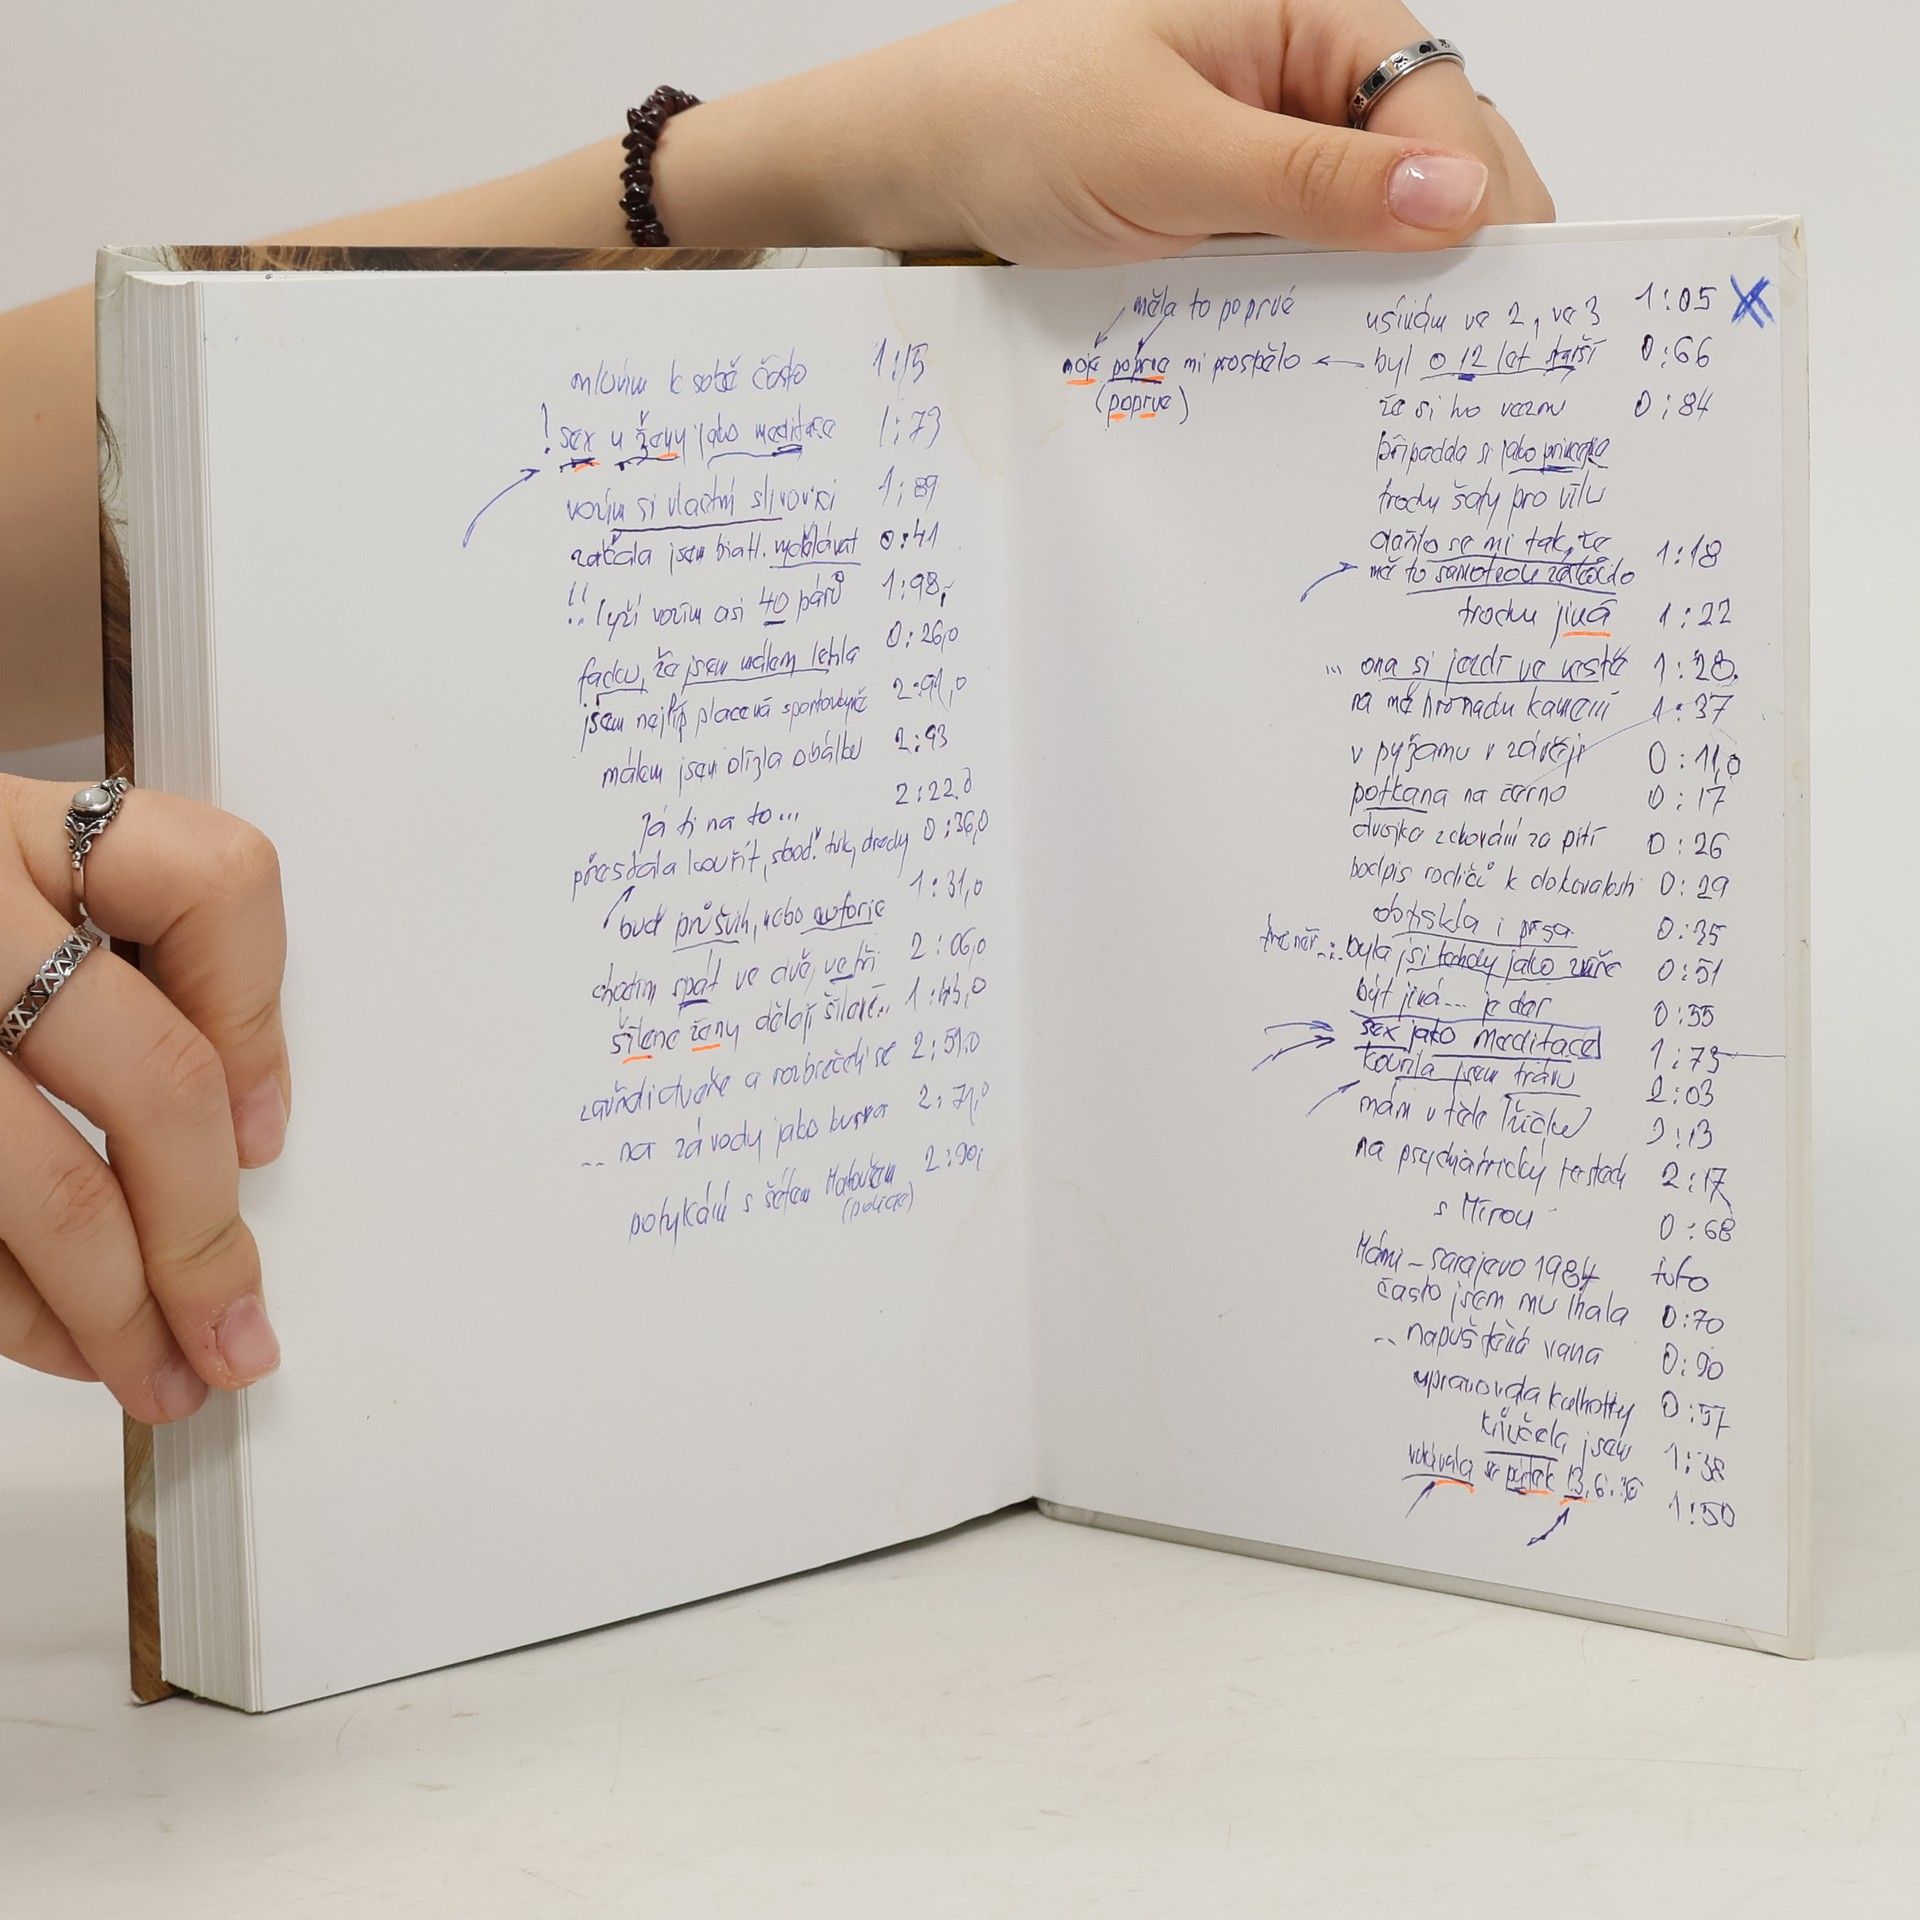 mluvím k sobě často 1:15
! sex u ženy jako meditace 1:73
vozím si vlastní slivovici 1:89
začala jsem biatl. vydělávat 0:41
!! lyží vozím asi 40 párů 1:98
facku, že jsem málem lehla 0:26,0
jsem nejlíp placená sportovkyně 2:91,0
málem jsem olízla obálku 2:93
Já ti na to... 2:22,0
přestala kouřit, tuk, 0:36,0
buď průšvih, nebo euforie 1:31,0
chodím spát ve dvě, ve tři 2:06,0
šílené ženy dělají šílené... 1:43,0
a rozbrečely se 2:51,0
.. na závody jako kurva 2:71,0
potykání s šéfem 2:90
(policie)
měla to poprvé
moje poprvé mi prospělo
(poprve)
usínám ve 2, ve 3 1:05
byl o 12 let starší 0:66
že si ho vezmu 0:84
připadda si jako princezna
trochu šaty pro vílu
dařilo se mi tak, že
mě to samotnou zaskočilo 1:18
trochu jiná 1:22
... ona si jezdí ve vestě 1:28
na mě hromadu kamení 1:37
v pyžamu v závěji 0:11,0
potkana na černo 0:17
dvojka z chování za pití 0:26
podpis rodičů k dokonalosti 0:29
obtiskla i prsa 0:35
trenér.... byla jsi tehdy jako zvíře 0:51
být jiná... je dar 0:55
sex jako meditace 1:73
kouřila jsem trávu 2:03
mám v těle 2:13
na psychiatrický testech 2:17
s Mírou 0:68
Mámi - Sarajevo 1984 foto
často jsem mu lhala 0:70
.. napuštěná vana 0:90
upravovala kalhotky 0:57
křičela jsem 1:38
vdávala se pátek 13.6. 1:50